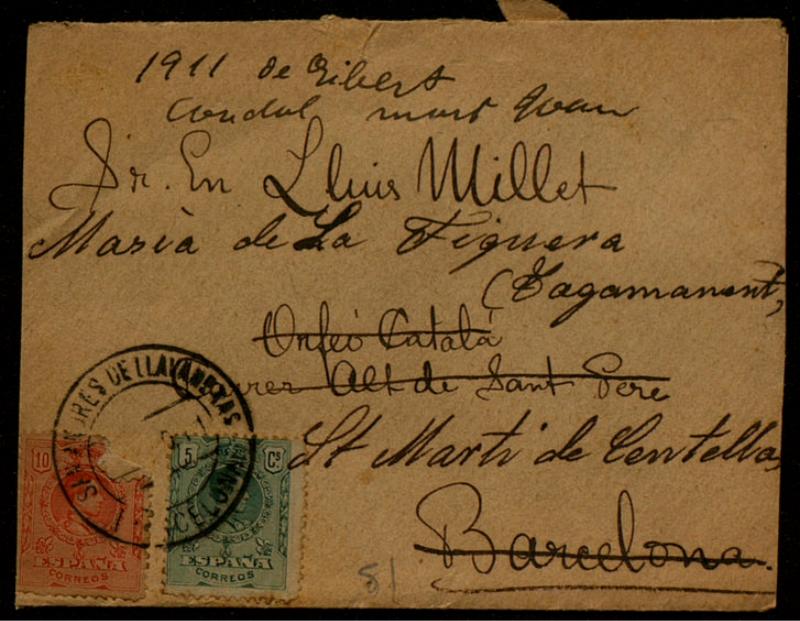 1911 de Gibert
Condal mort Joan
Sr. En Lluis Millet
Masià de La Figuera
(Tagamanent,
Orfeó Catalá
Carrer Alt de Sant Pere
St Martí de Centellas
Barcelona.
S. ANDRES DE LLAVANERAS
BARCELONA
10
ESPAÑA
CORREOS
5 Cs
ESPAÑA
CORREOS